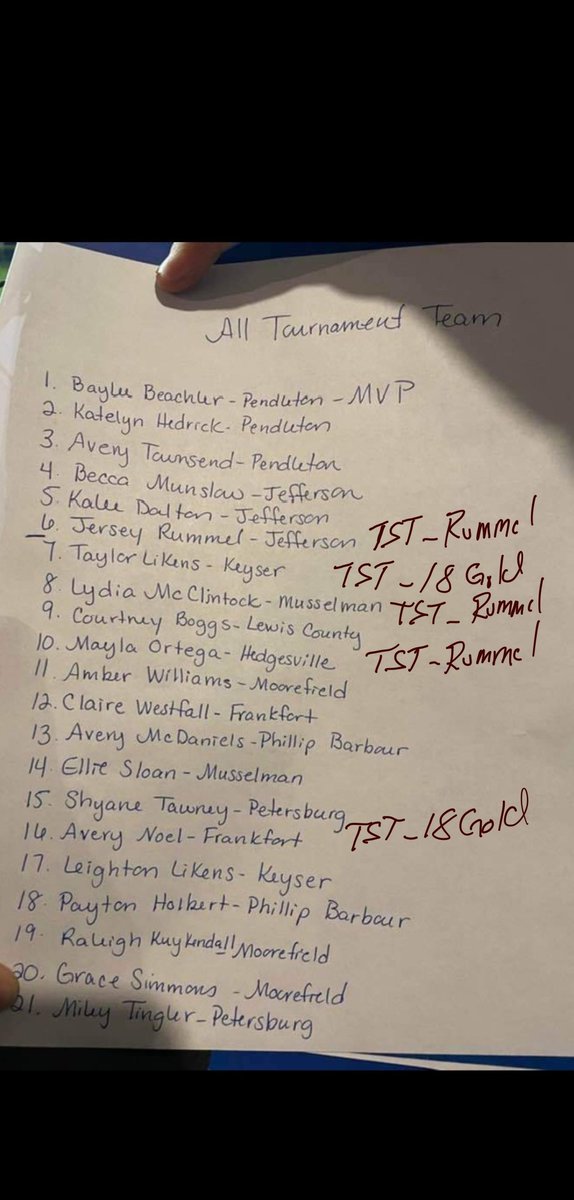 All Tournament Team
1. Baylee Beachler - Pendleton - MVP
2. Katelyn Hedrick - Pendleton
3. Avery Townsend - Pendleton
4. Becca Munslow - Jefferson
5. Kalee Dalton - Jefferson
6. Jersey Rummel - Jefferson TST - Rummel
7. Taylor Likens - Keyser TST - 18 Gold
8. Lydia McClintock - Musselman TST - Rummel
9. Courtney Boggs - Lewis County
10. Mayla Ortega - Hedgesville TST - Rummel
11. Amber Williams - Moorefield
12. Claire Westfall - Frankfort
13. Avery McDaniels - Phillip Barbour
14. Ellie Sloan - Musselman
15. Shyane Tawney - Petersburg
16. Avery Noel - Frankfort TST - 18 Gold
17. Leighton Likens - Keyser
18. Payton Holbert - Phillip Barbour
19. Raleigh Kuykendall Moorefield
20. Grace Simmons - Moorefield
21. Miley Tingler - Petersburg